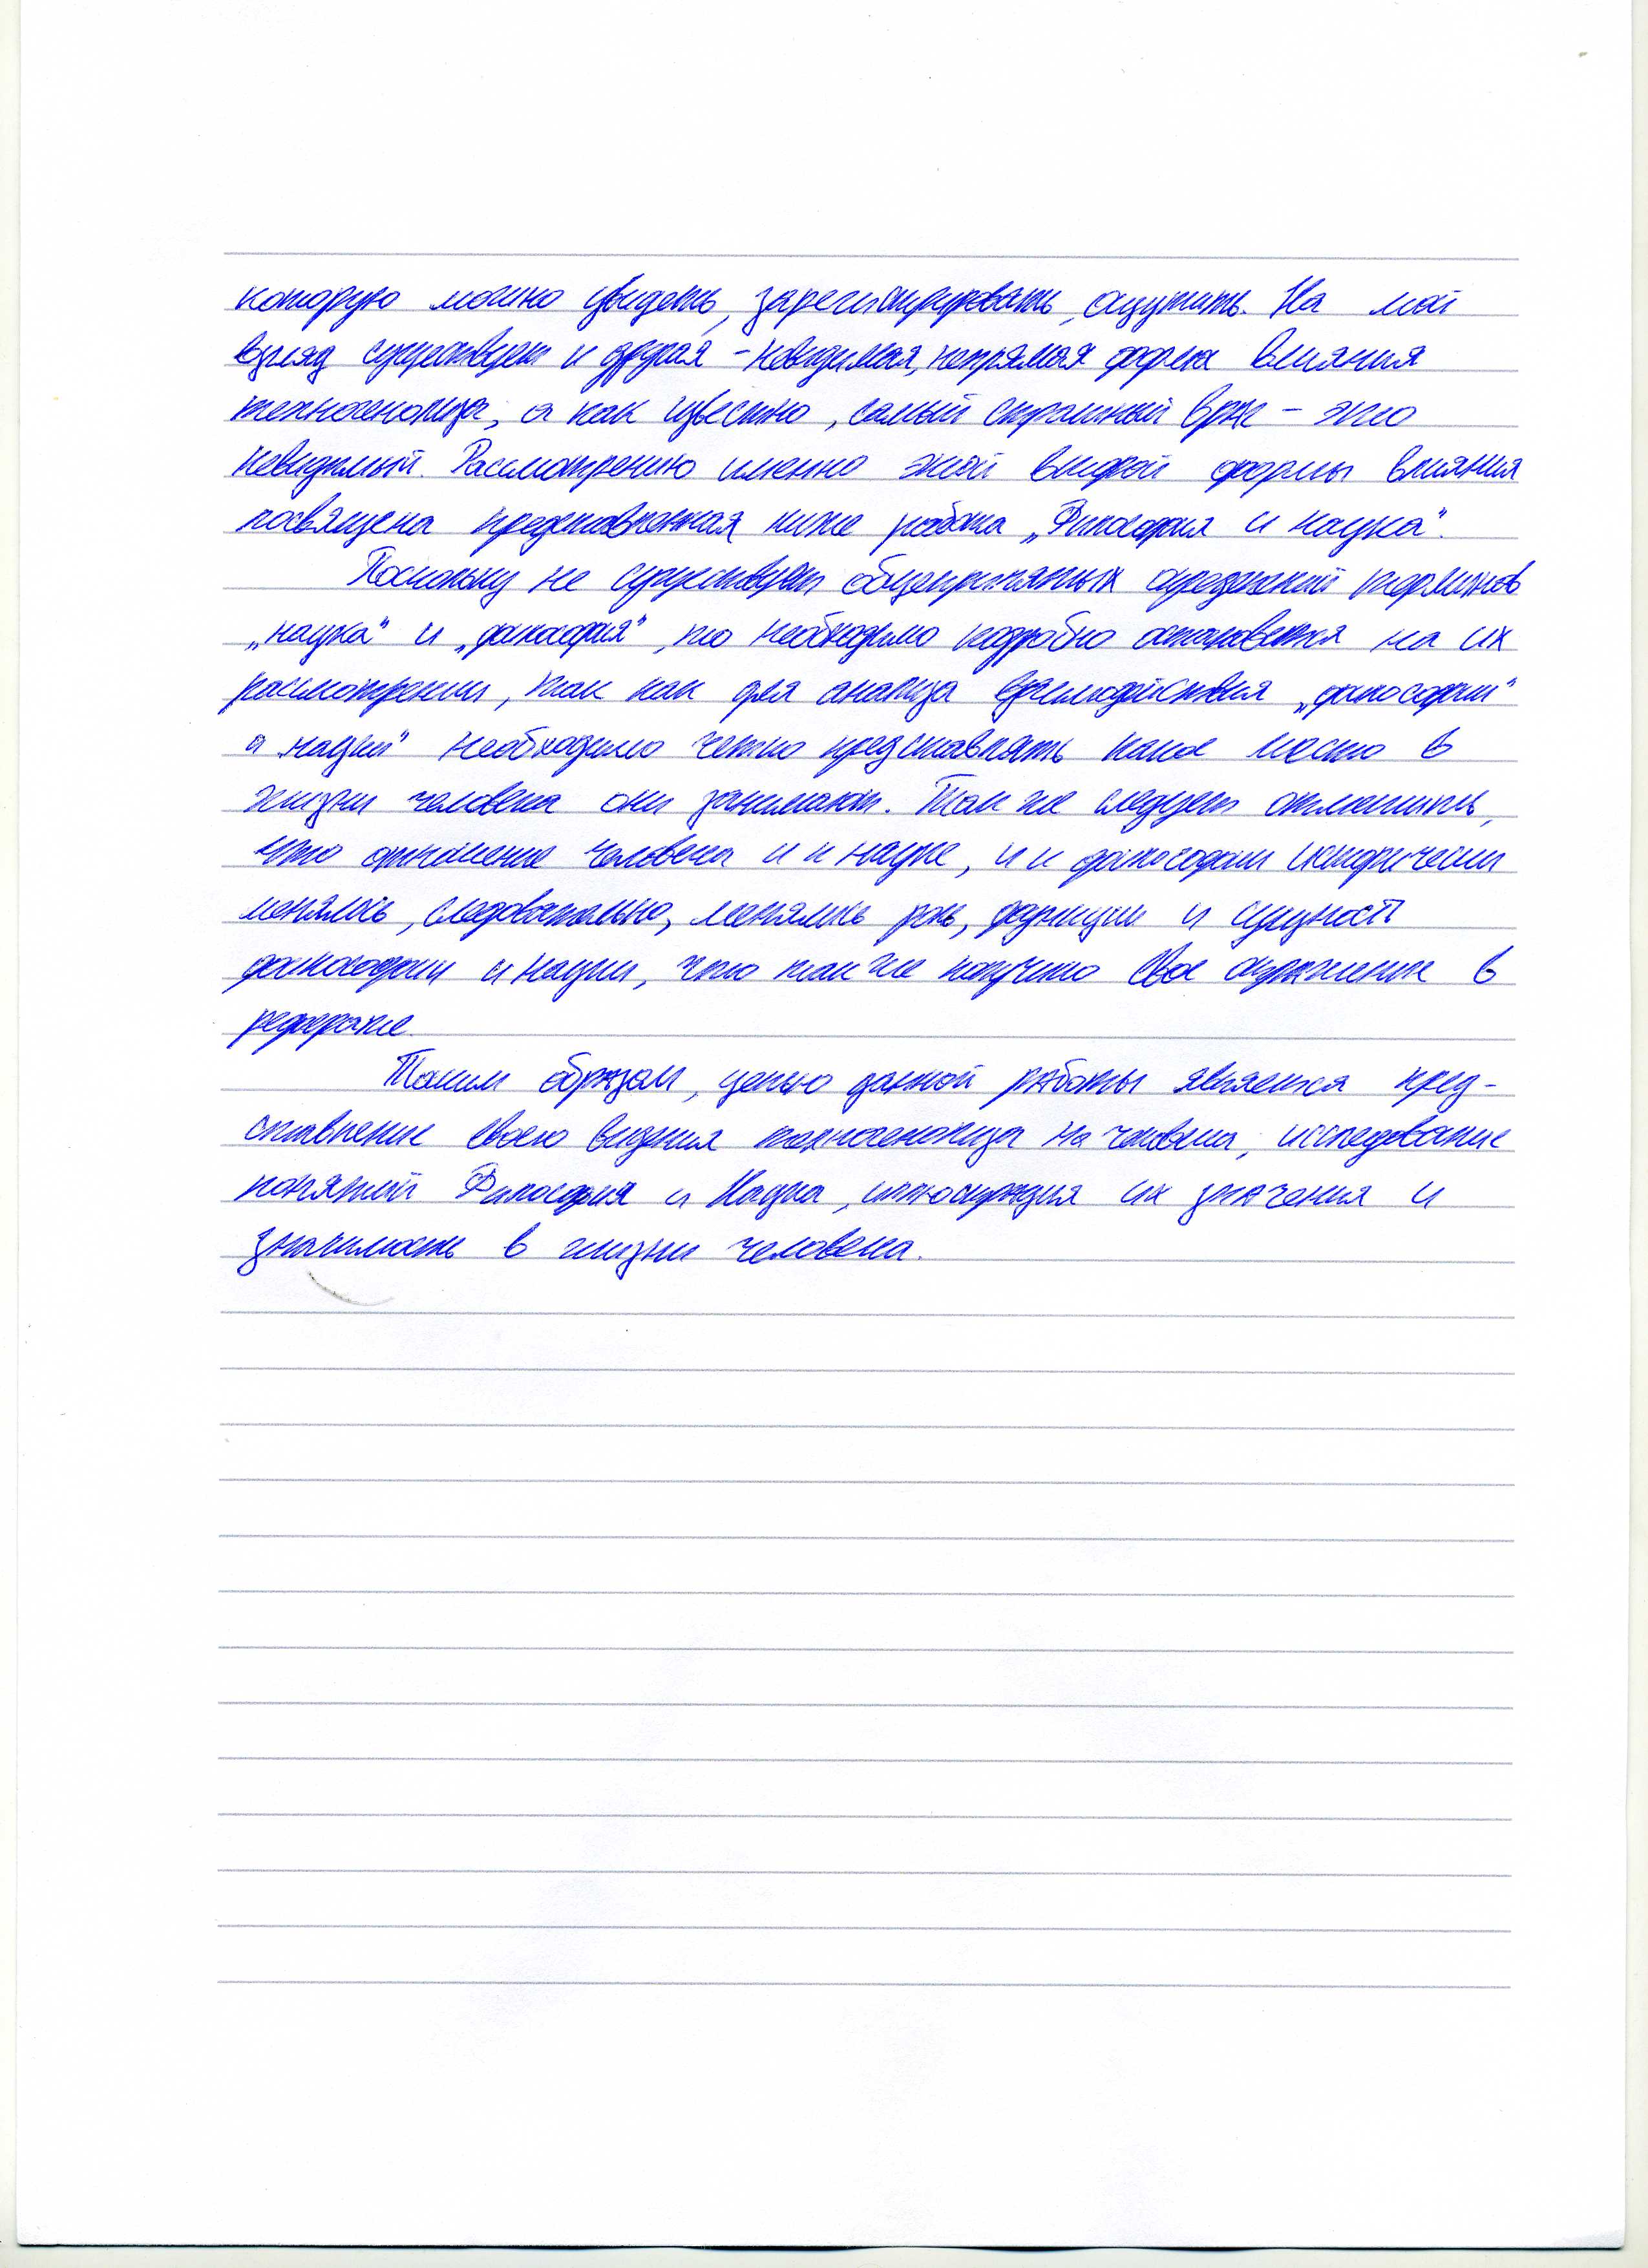 которую можно увидеть, зарегистрировать, ощутить. На мой
взгляд существует и другая – невидимая, непрямая форма влияния
техногенеза, а как известно, самый страшный враг – это
невидимый. Рассмотрению именно этой второй формы влияния
посвящена представленная ниже работа „Философия и наука“.
Поскольку не существует общепринятых определений терминов
„наука“ и „философия“, то необходимо подробно остановится на их
рассмотрении, так как для анализа взаимодействия „философии“
и „науки“ необходимо четко представлять какое место в
жизни человека они занимают. Так же следует отметить,
что отношение человека и к науке, и к философии исторически
менялось, следовательно, менялись роль, функции и сущность
философии и науки, что так же получило свое отражение в
реферате.
Таким образом, целью данной работы является пред-
ставление своего видения техногенеза на человека, исследование
понятий Философия и Наука, иллюстрация их значения и
значимость в жизни человека.